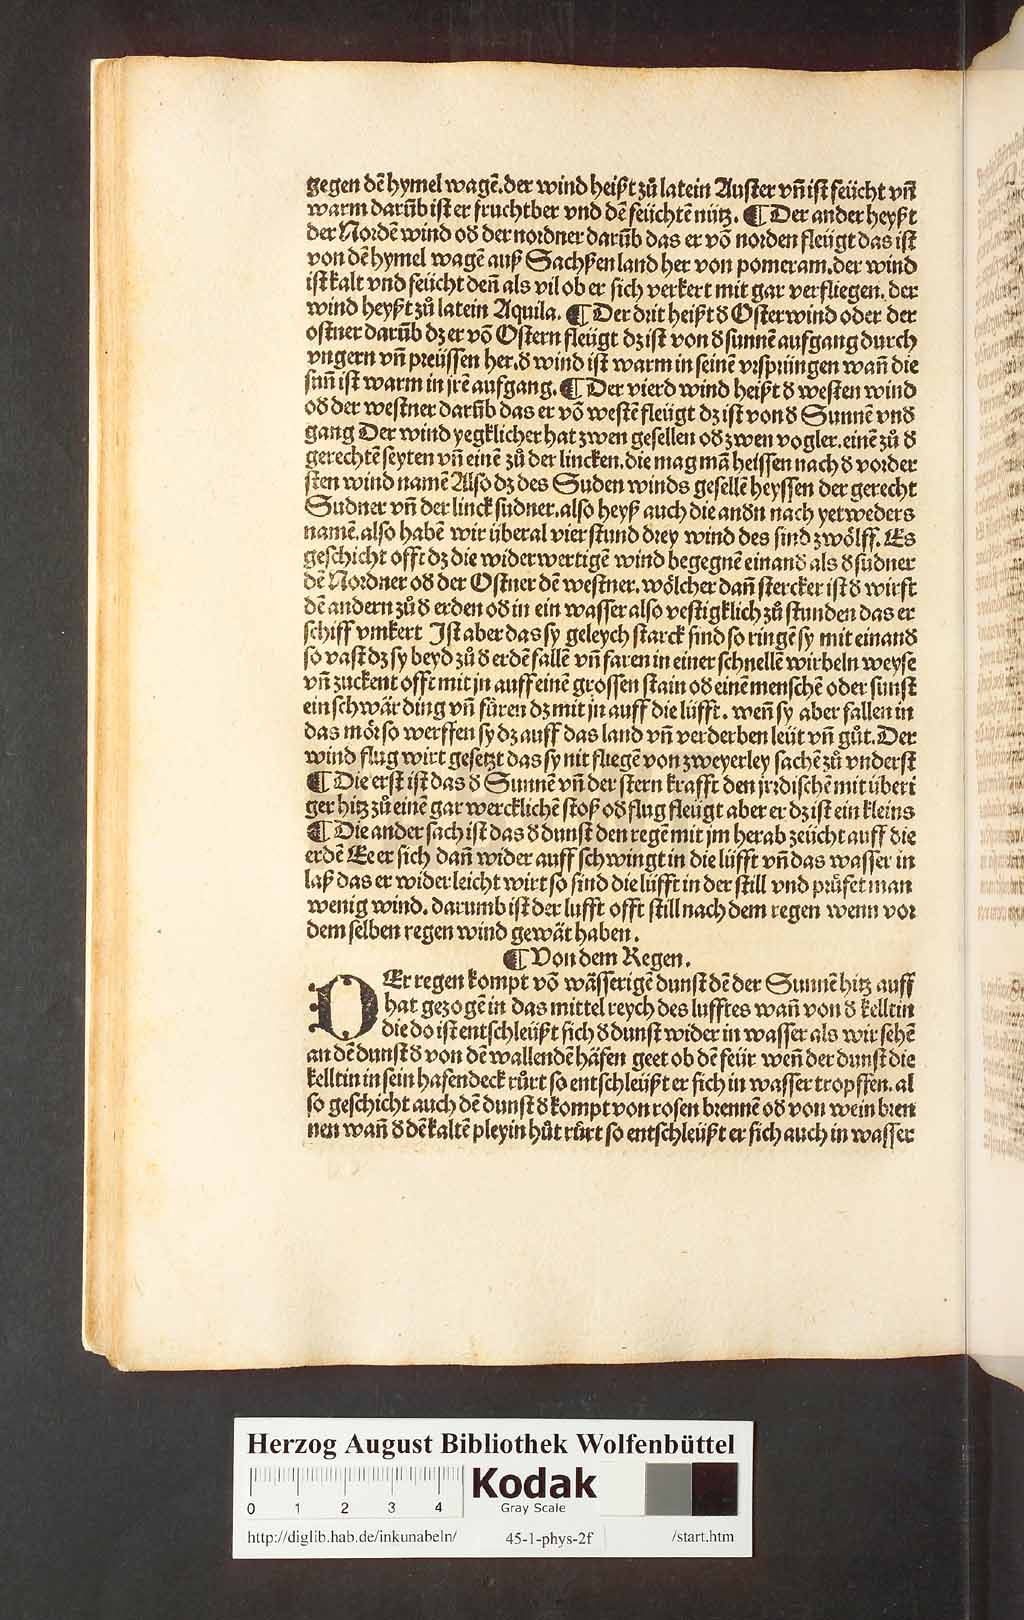 gegen dē hymel wagē. der wind heißt zů latein Auster vñ ist feücht vñ
warm darūb ist er fruchtber vnd dē feüchtē nütz. ¶ Der ander heyßt
der Nordē wind od̕ der nordner darūb das er vō norden fleügt das ist
von dē hymel wagē auß Sachßen land her von pomeram. der wind
ist kalt vnd feücht deñ als vil ob er sich verkert mit gar verfliegen. der
wind heyßt zů latein Aquila. ¶ Der drit heißt d̕ Osterwind oder der
ostner darūb dz er vō Ostern fleügt dz ist von d̕ sunnē aufgang durch
vngern vñ preüssen her. d̕ wind ist warm in seinē vrsprüngen wañ die
suñ ist warm in jrē aufgang. ¶ Der vierd wind heißt d̕ westen wind
od̕ der westner darūb das er vō westē fleügt dz ist von d̕ Sunnē vnd̕
gang Der wind yegklicher hat zwen gesellen od̕ zwen vogler. einē zů d̕
gerechtē seyten vñ einē zů der lincken. die mag mā heissen nach d̕ vorder
sten wind namē Also dz des Suden winds gesellē heyssen der gerecht
Sudner vñ der linck sudner. also heyß auch die andn̄ nach yetweders
namē. also habē wir überal vierstund drey wind des sind zwölff. Es
geschicht offt dz die widerwertigē wind begegnē einand̕ als d̕ sudner
dē Nordner od̕ der Ostner dē westner. wölcher dañ stercker ist d̕ wirft
dē andern zů d̕ erden od̕ in ein wasser also vestigklich zů stunden das er
schiff vmkert Ist aber das sy geleych starck sind so ringē sy mit einand̕
so vast dz sy beyd zů d̕ erdē fallē vñ faren in einer schnellē wirbeln weyse
vñ zuckent offt mit jn auff einē grossen stain od̕ einē menschē oder sunst
ein schwär ding vñ fůren dz mit jn auff die lüfft. weñ sy aber fallen in
das mör so werffen sy dz auff das land vñ verderben leüt vñ gůt. Der
wind flug wirt gesetzt das sy nit fliegē von zweyerley sachē zů vnderst
¶ Die erst ist das d̕ Sunnē vñ der stern krafft den jrdischē mit überi
ger hitz zů einē gar wercklichē stoß od̕ flug fleügt aber er dz ist ein kleins
¶ Die ander sach ist das d̕ dunst den regē mit jm herab zeücht auff die
erdē Ee er sich dañ wider auff schwingt in die lüfft vñ das wasser in
laß das er wider leicht wirt so sind die lüfft in der still vnd průfet man
wenig wind. darumb ist der lufft offt still nach dem regen wenn vor
dem selben regen wind gewät haben.
¶ Von dem Regen.
DEr regen kompt vō wässerigē dunst dē der Sunnē hitz auff
hat gezogē in das mittel reych des lufftes wañ von d̕ kelltin
die do ist entschleüßt sich d̕ dunst wider in wasser als wir sehē
an dē dunst d̕ von dē wallendē häfen geet ob dē feür weñ der dunst die
kelltin in sein hafendeck růrt so entschleüßt er sich in wasser tropffen. al
so geschicht auch dē dunst d̕ kompt von rosen brennē od̕ von wein bren
nen wañ d̕ dē kaltē pleyin hůt růrt so entschleüßt er sich auch in wasser
Herzog August Bibliothek Wolfenbüttel
0 1 2 3 4
Kodak
Gray Scale
http://diglib.hab.de/inkunabeln/ 45-1-phys-2f /start.htm